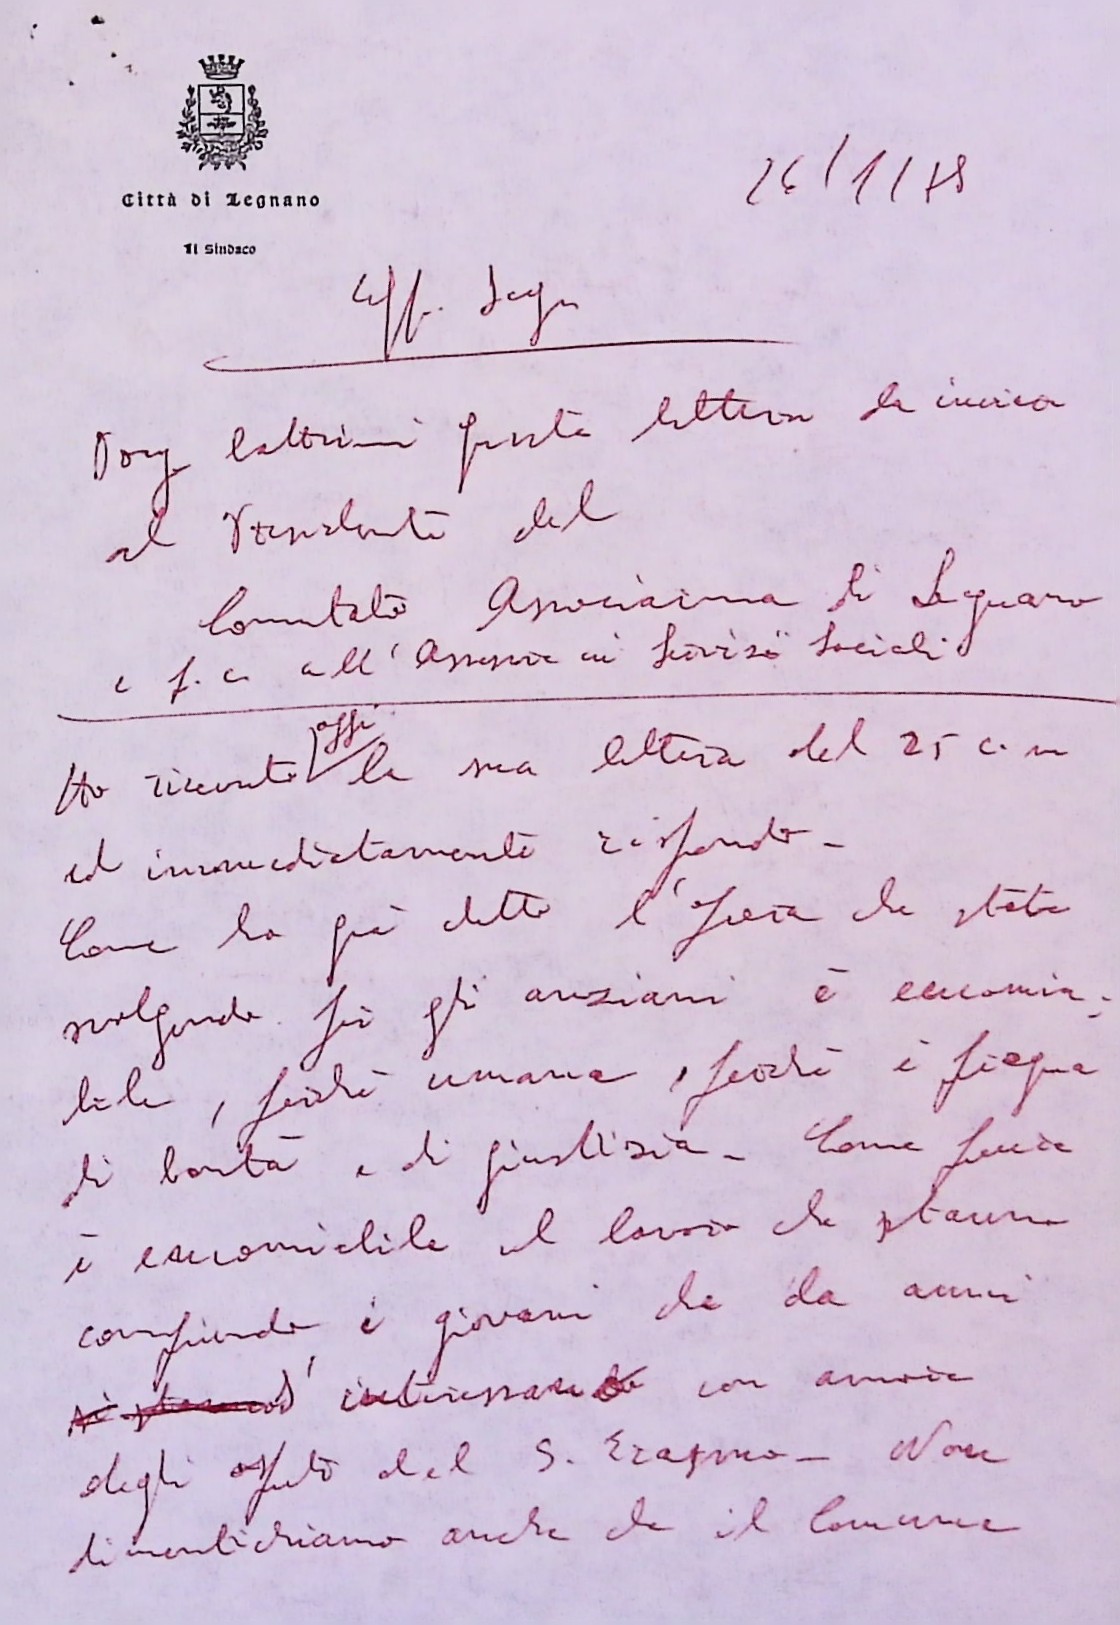 Città di Legnano
Il Sindaco
26/1/78
Uff. Segr
Preg battrimi questa lettera da inviare
al Presidente del
Comitato Associazioni di Legnano
e p.c. all'Assessore ai Servizi Sociali
Ho ricevuto oggi la sua lettera del 25 c.m
ed immediatamente rispondo -
Come ho già detto l'opera che state
svolgendo per gli anziani è encomia-
bile, perchè umana, perchè è pregna
di bontà e di giustizia - Come pure
è encomiabile il lavoro che stanno
compiendo i giovani che da anni
s'interessano con amore
degli ospiti del S. Erasmo - Non
dimentichiamo anche che il Comune